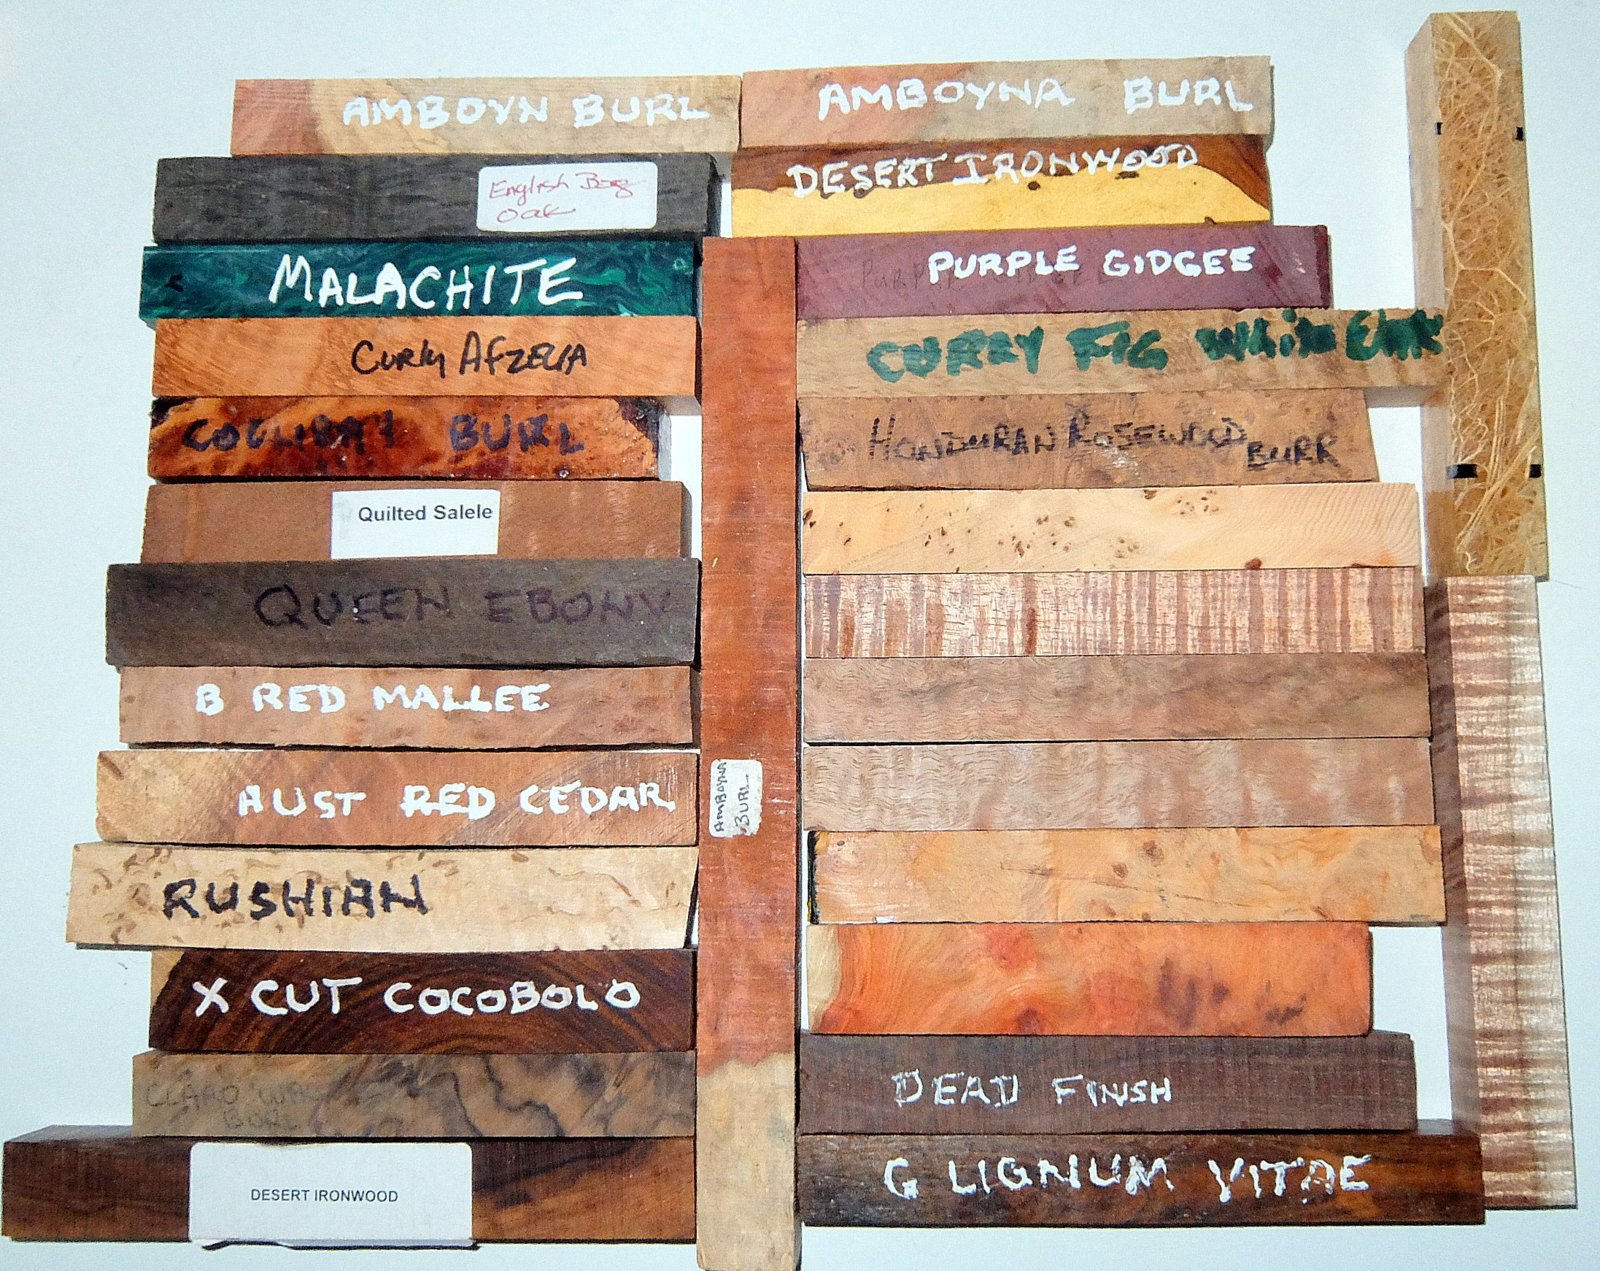 AMBOYN BURL
AMBOYNA BURL
English Bog
Oak
DESERT IRONWOOD
MALACHITE
PURPLE GIDGEE
Curly AFZELIA
CURRY FIG
COOLIBAY BURL
HONDURAN ROSEWOOD
BURR
Quilted Salele
QUEEN EBONY
B RED MALLEE
AUST RED CEDAR
AMBOYNA
BURL
RUSHIAN
X CUT COCOBOLO
CLARO
BURL
DEAD FINISH
DESERT IRONWOOD
G LIGNUM VITAE